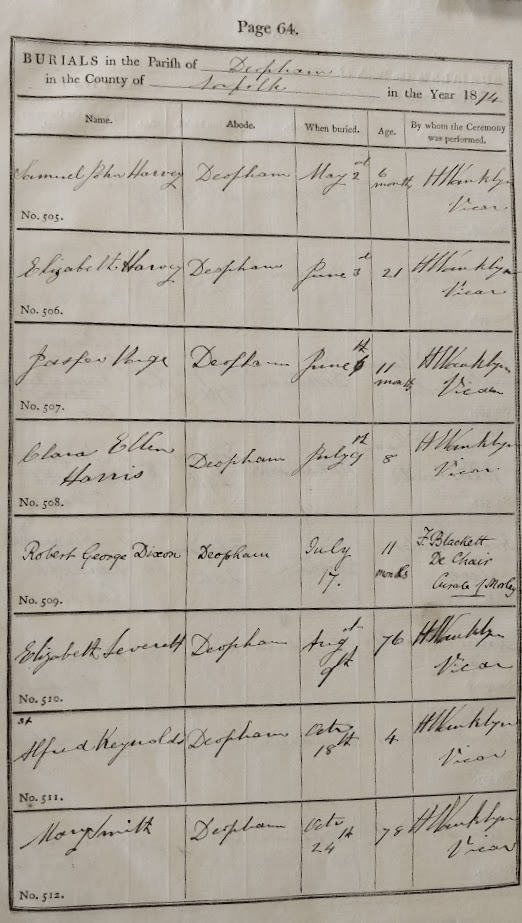 Page 64.
BURIALS in the Parish of Deopham
in the County of Norfolk in the Year 1874
Name. Abode. When buried. Age. By whom the Ceremony was performed.
Samuel John Harvey Deopham May 2nd 6 months H Winklyn Vicar
No. 505.
Elizabeth Harvey Deopham June 3d 21 H Winklyn Vicar
No. 506.
Jasper Deopham June 11 months H Winklyn Vicar
No. 507.
Clara Ellen Harris Deopham July 9th 8 H Winklyn Vicar
No. 508.
Robert George Dixon Deopham July 17. 11 months F Blackett De Chair Curate of Morley
No. 509.
Elizabeth Leverett Deopham Augst 9th 76 H Winklyn Vicar
No. 510.
Alfred Reynolds Deopham Octr 18th 4 H Winklyn Vicar
No. 511.
Mary Smith Deopham Octr 24th 78 H Winklyn Vicar
No. 512.